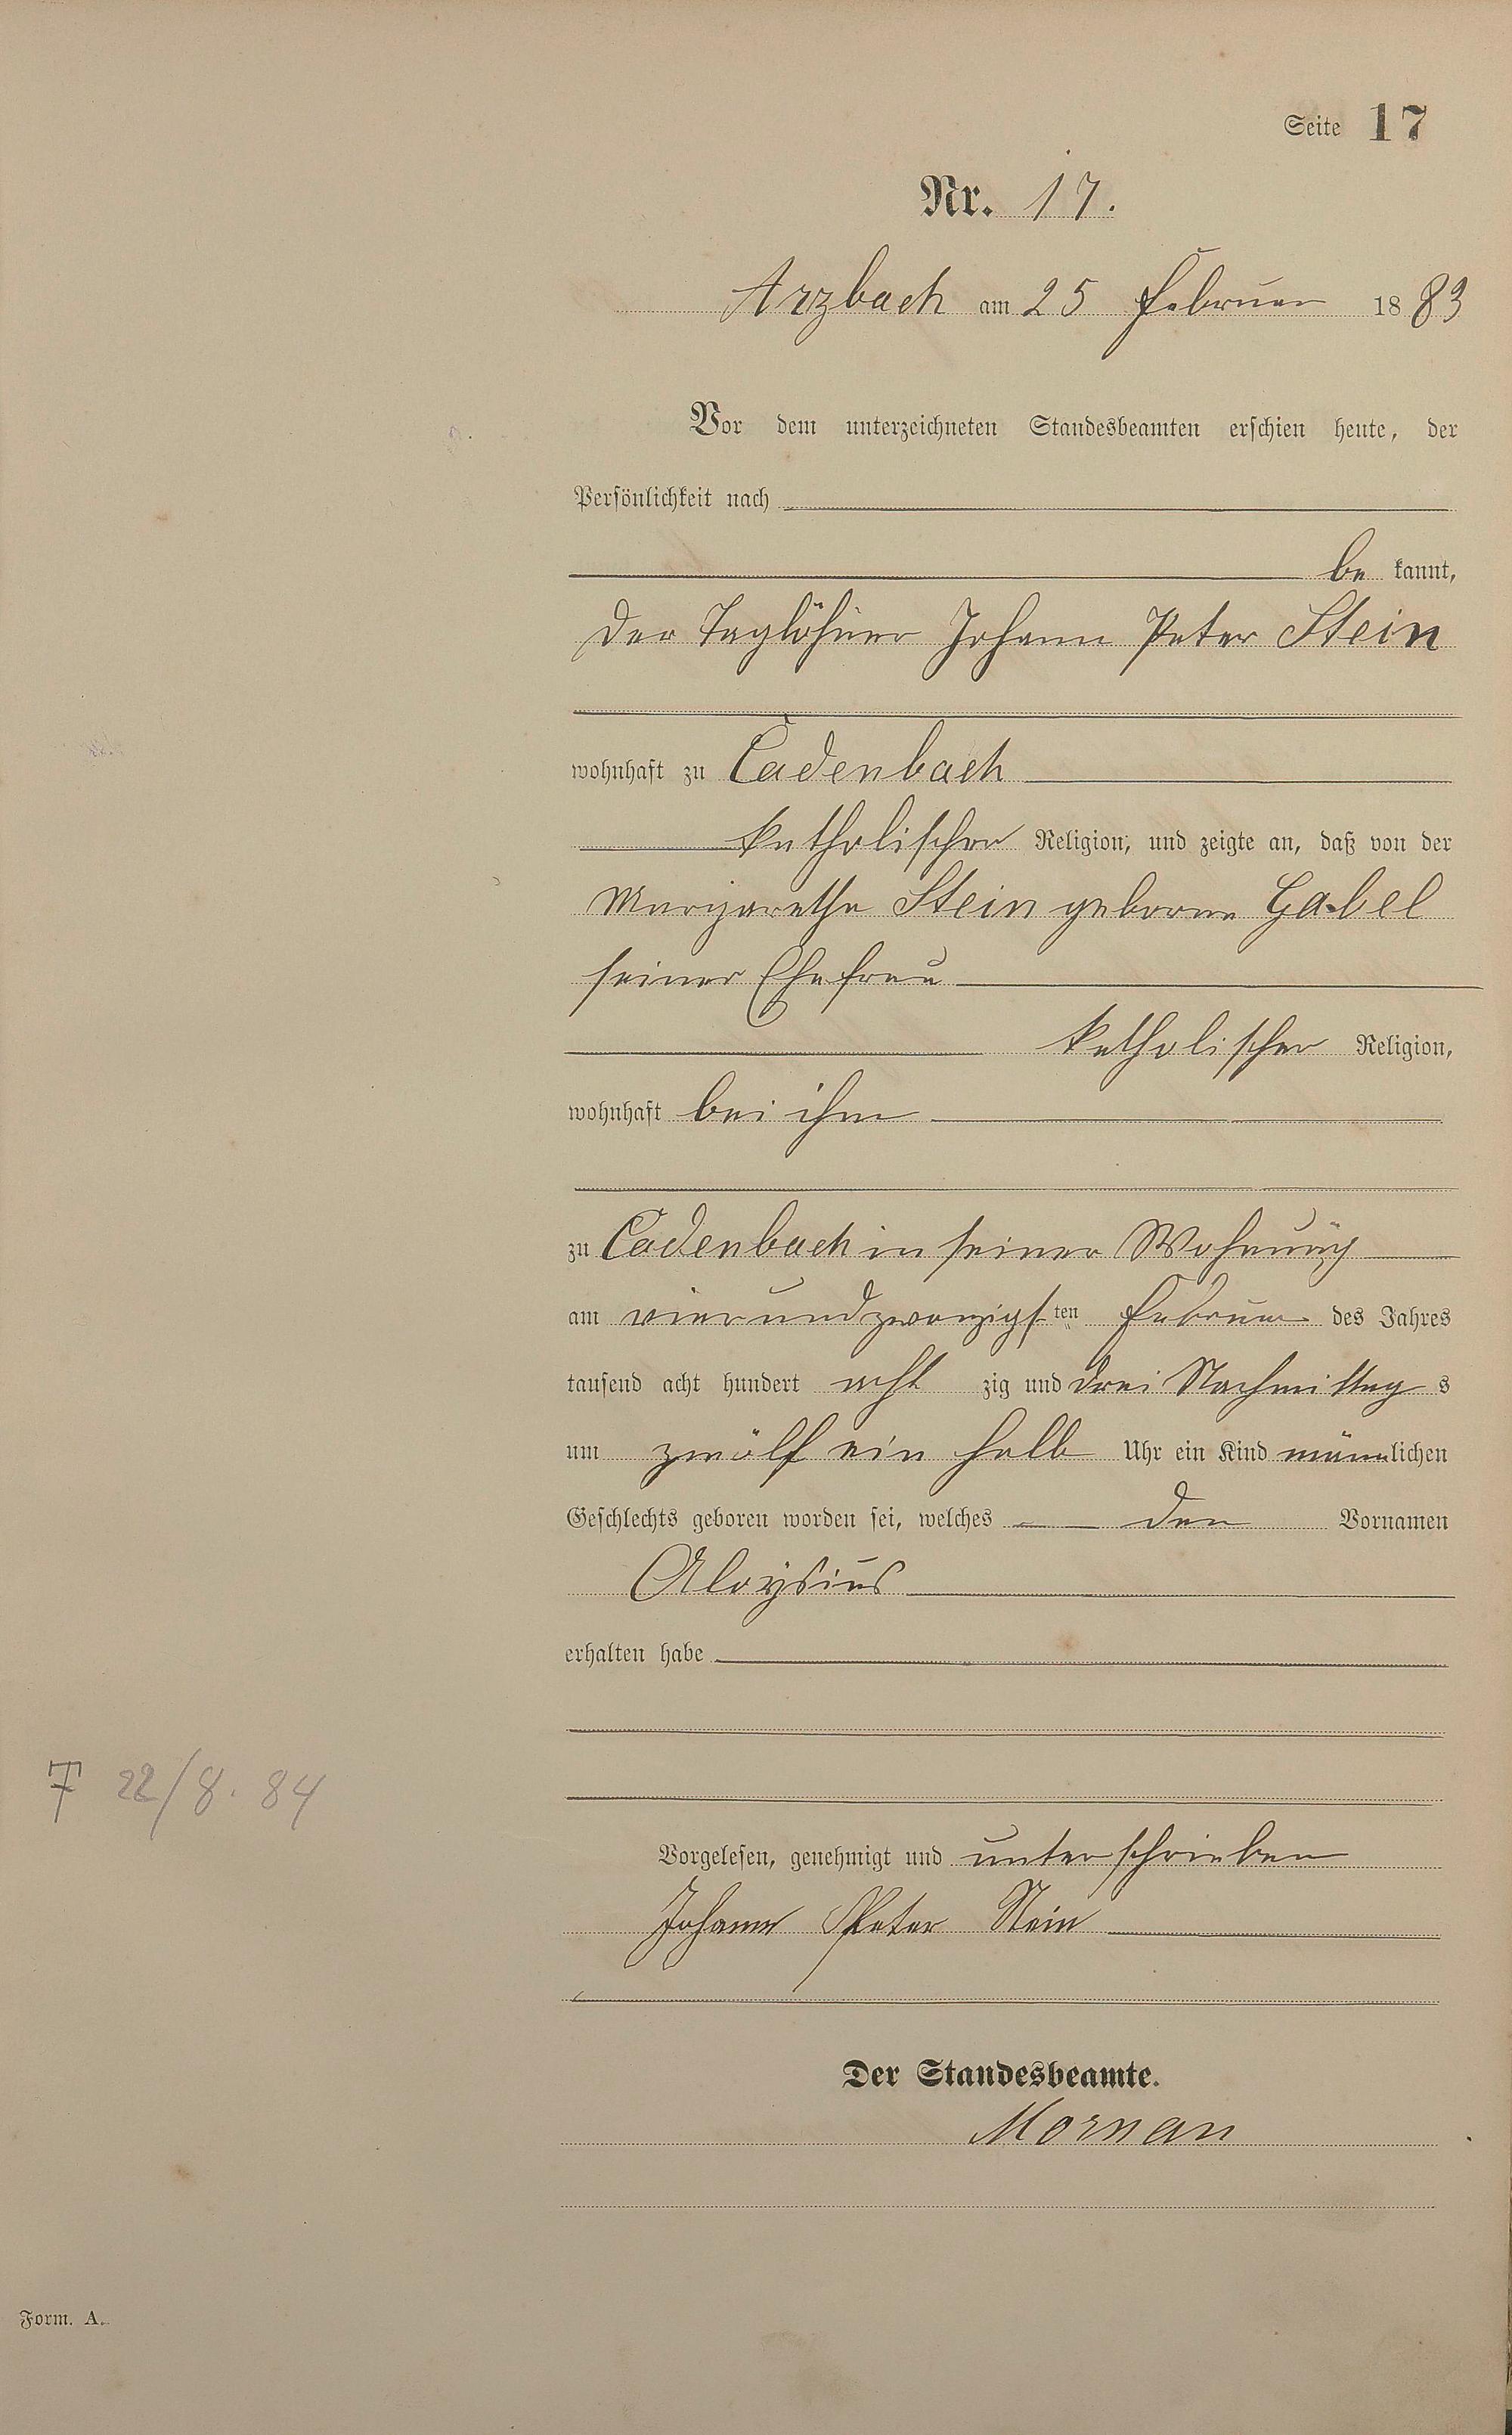 Seite 17
Nr. 17.
Arzbach am 25 Februar 1883
Vor dem unterzeichneten Standesbeamten erschien heute, der
Persönlichkeit nach
be kannt,
der Taglöhner Johann Peter Stein
wohnhaft zu Cadenbach
katholischer Religion, und zeigte an, daß von der
Margarethe Stein geborne Gabel
seiner Ehefrau
katholischer Religion,
wohnhaft bei ihm
zu Cadenbach in seiner Wohnung
am vierundzwanzigsten Februar des Jahres
tausend acht hundert acht zig und drei Nachmittag s
um zwölf ein halb Uhr ein Kind männlichen
Geschlechts geboren worden sei, welches den Vornamen
Aloysius
erhalten habe
† 22/8. 84
Vorgelesen, genehmigt und unterschrieben
Johann Peter Stein
Der Standesbeamte.
Mornan
Form. A.